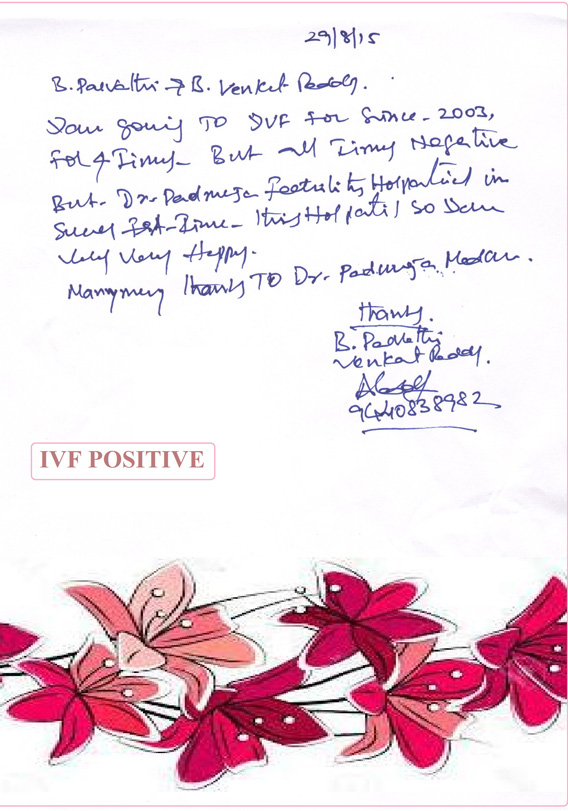 29/8/15
B. Parvathi → B. Venkat Reddy.
Iam going TO IVF for Since - 2003,
for 4 Times - But all Times Negative
But - Dr. Padmaja Feetulity Hospatial in
Sucess Ist - Time - This Hospatil so Iam
Very Very Happy.
Many many Thanks TO Dr. Padmaja Madam.
Thanks.
B. Parvathi
Venkat Reddy.
9440838982
IVF POSITIVE